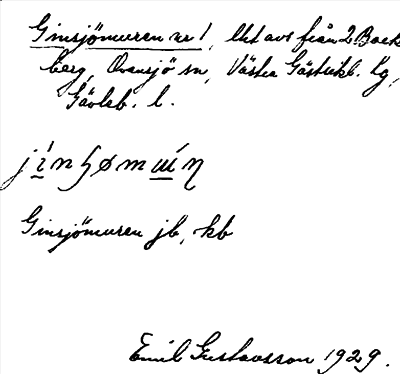 Ginsjömuren nr 1, lht avs från 2. Back
berg, Ovansjö sn, Västra Gästrikl. tg,
Gävleb. l.
jinʃømuiŋ
Ginsjömuren jb, kb
Emil Gustavsson 1929.